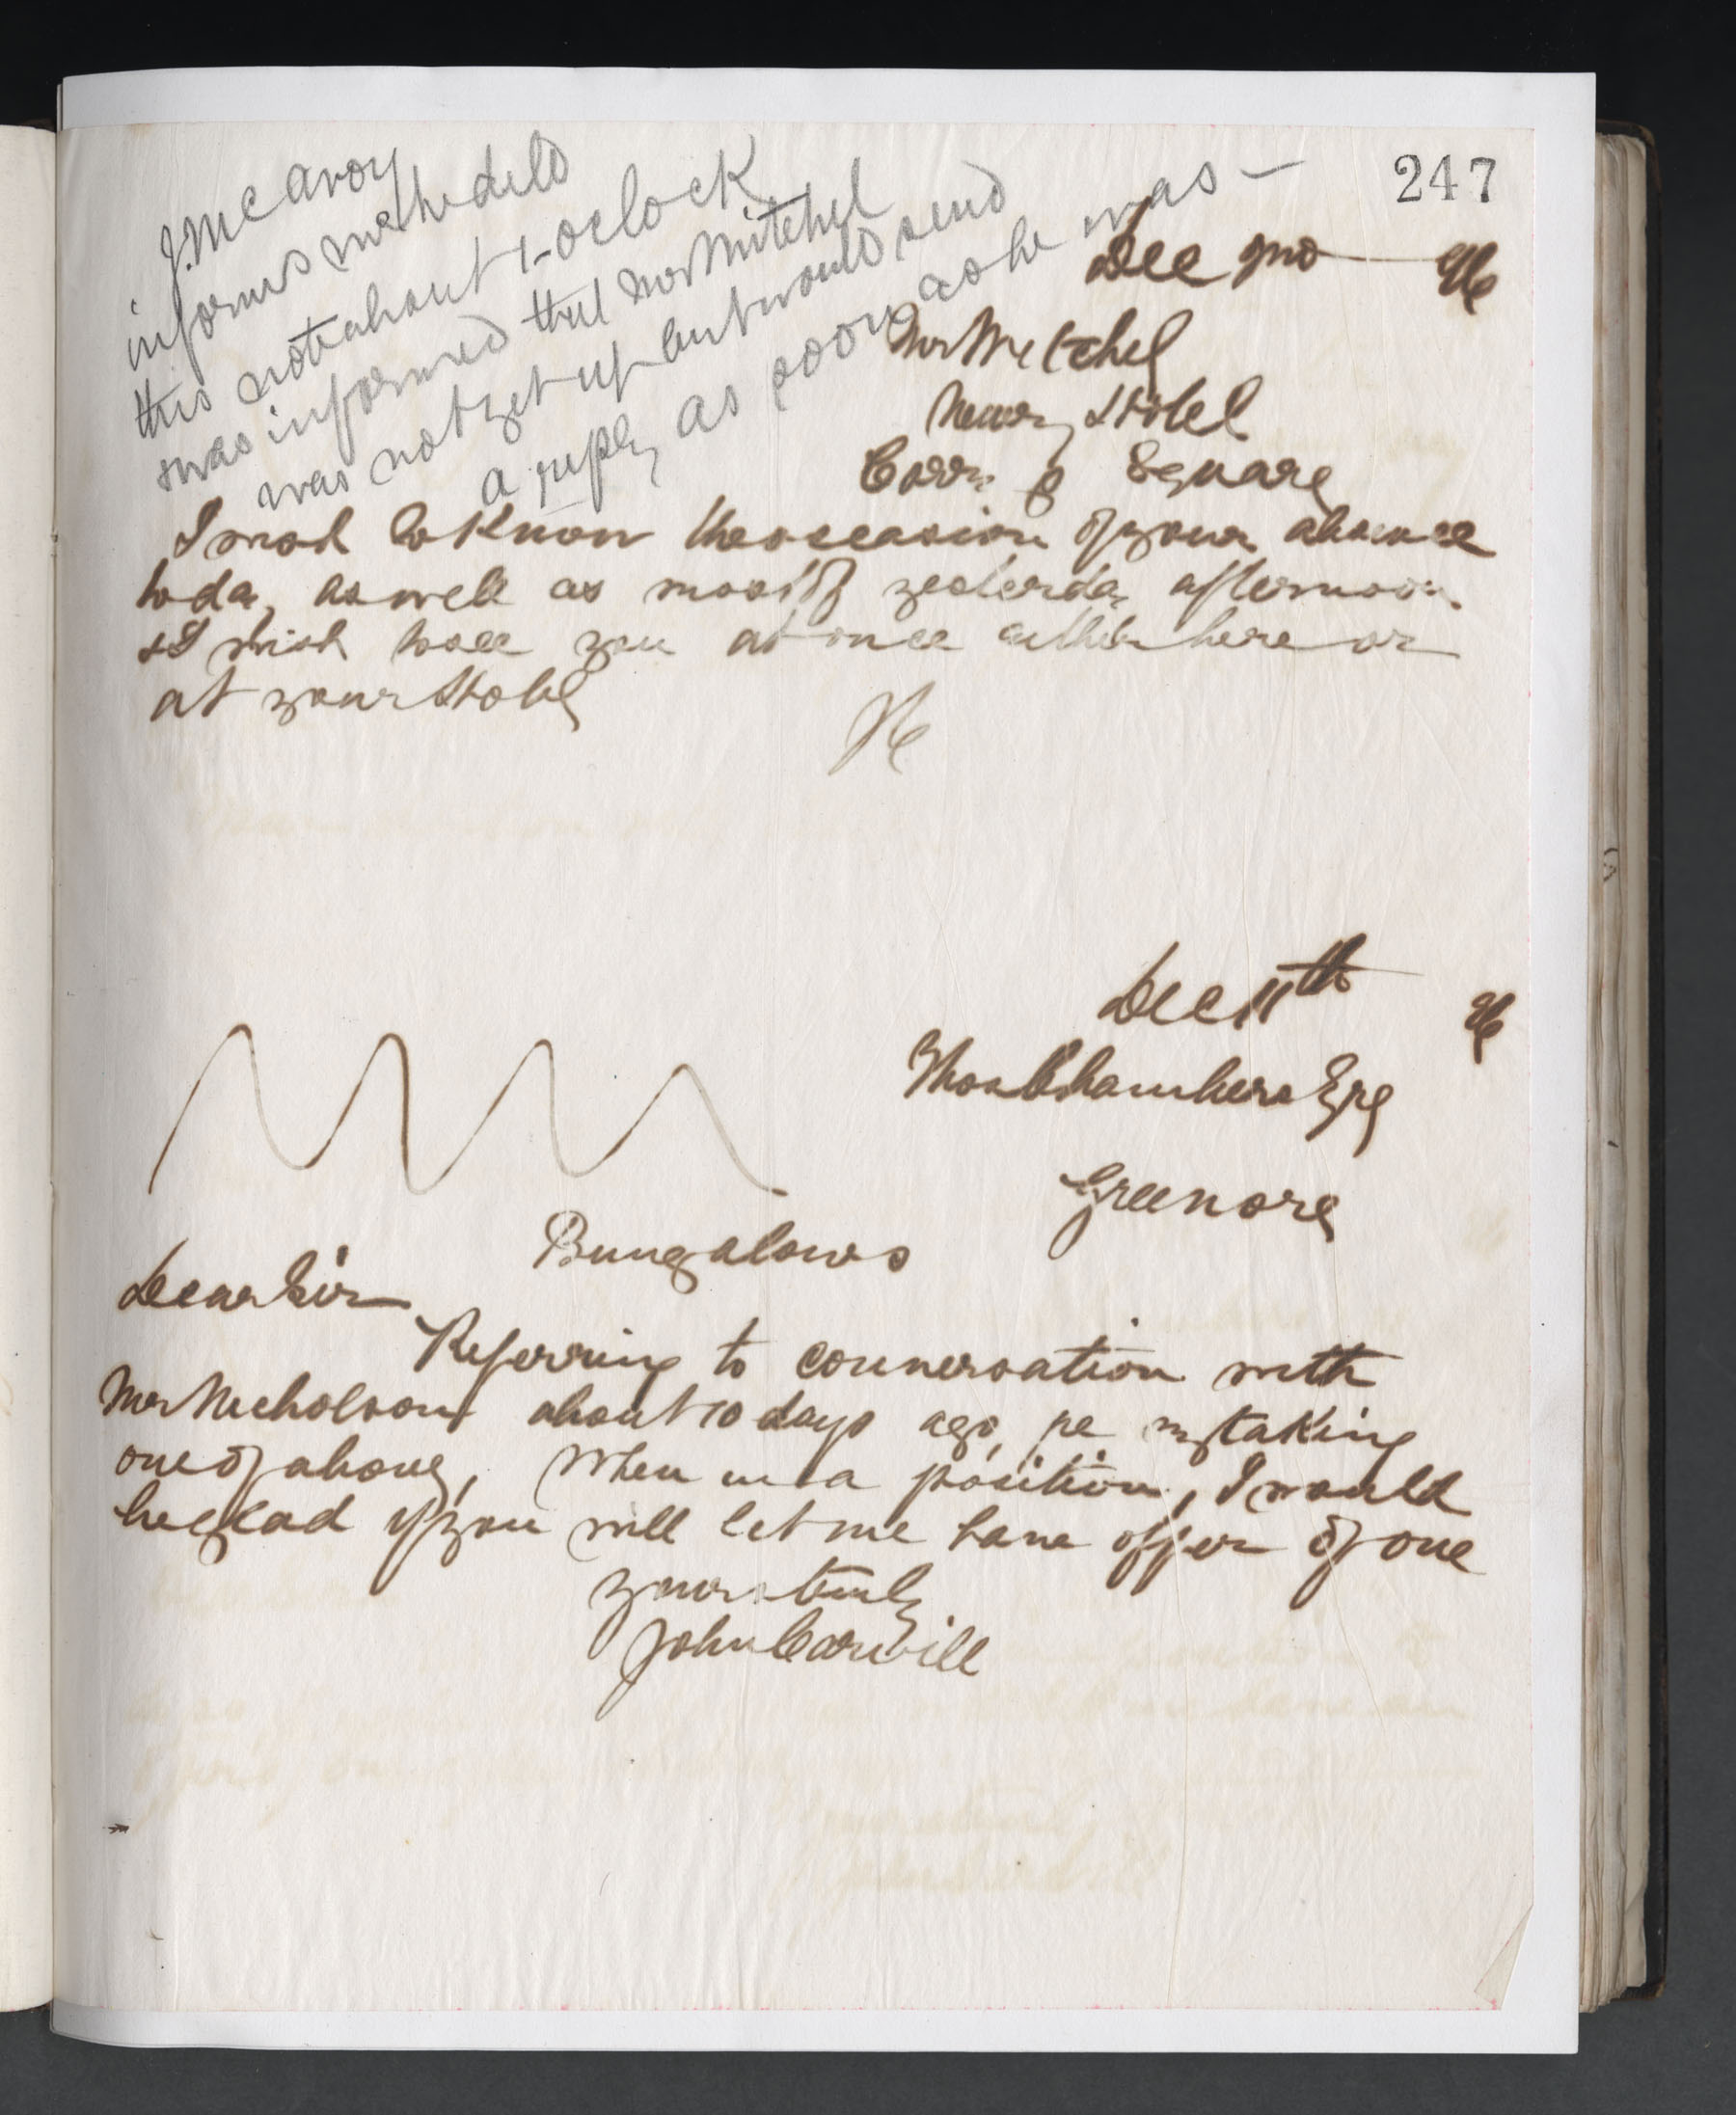 247
J. McAvoy
informs me he deld
this note about 1-oclock
was informed that Mr Mitchel
was not yet up but would send
a reply as soon as he was -
Dec 2nd 96
Mr Mitchel
Newry Hotel
Square
I wish to know the occasion of your absence
today, as well as most of yesterday afternoon.
& I wish to see you at once either here or
at your Hotel
Dec 11th 96
Thos Chambers Esq
Greenore
Bungalows
Dear Sir
Referring to conversation with
Mr Nicholson about 10 days ago, re my taking
one of above, When in a position, I would
be glad if you will let me have offer of one
yours truly
John Carvill